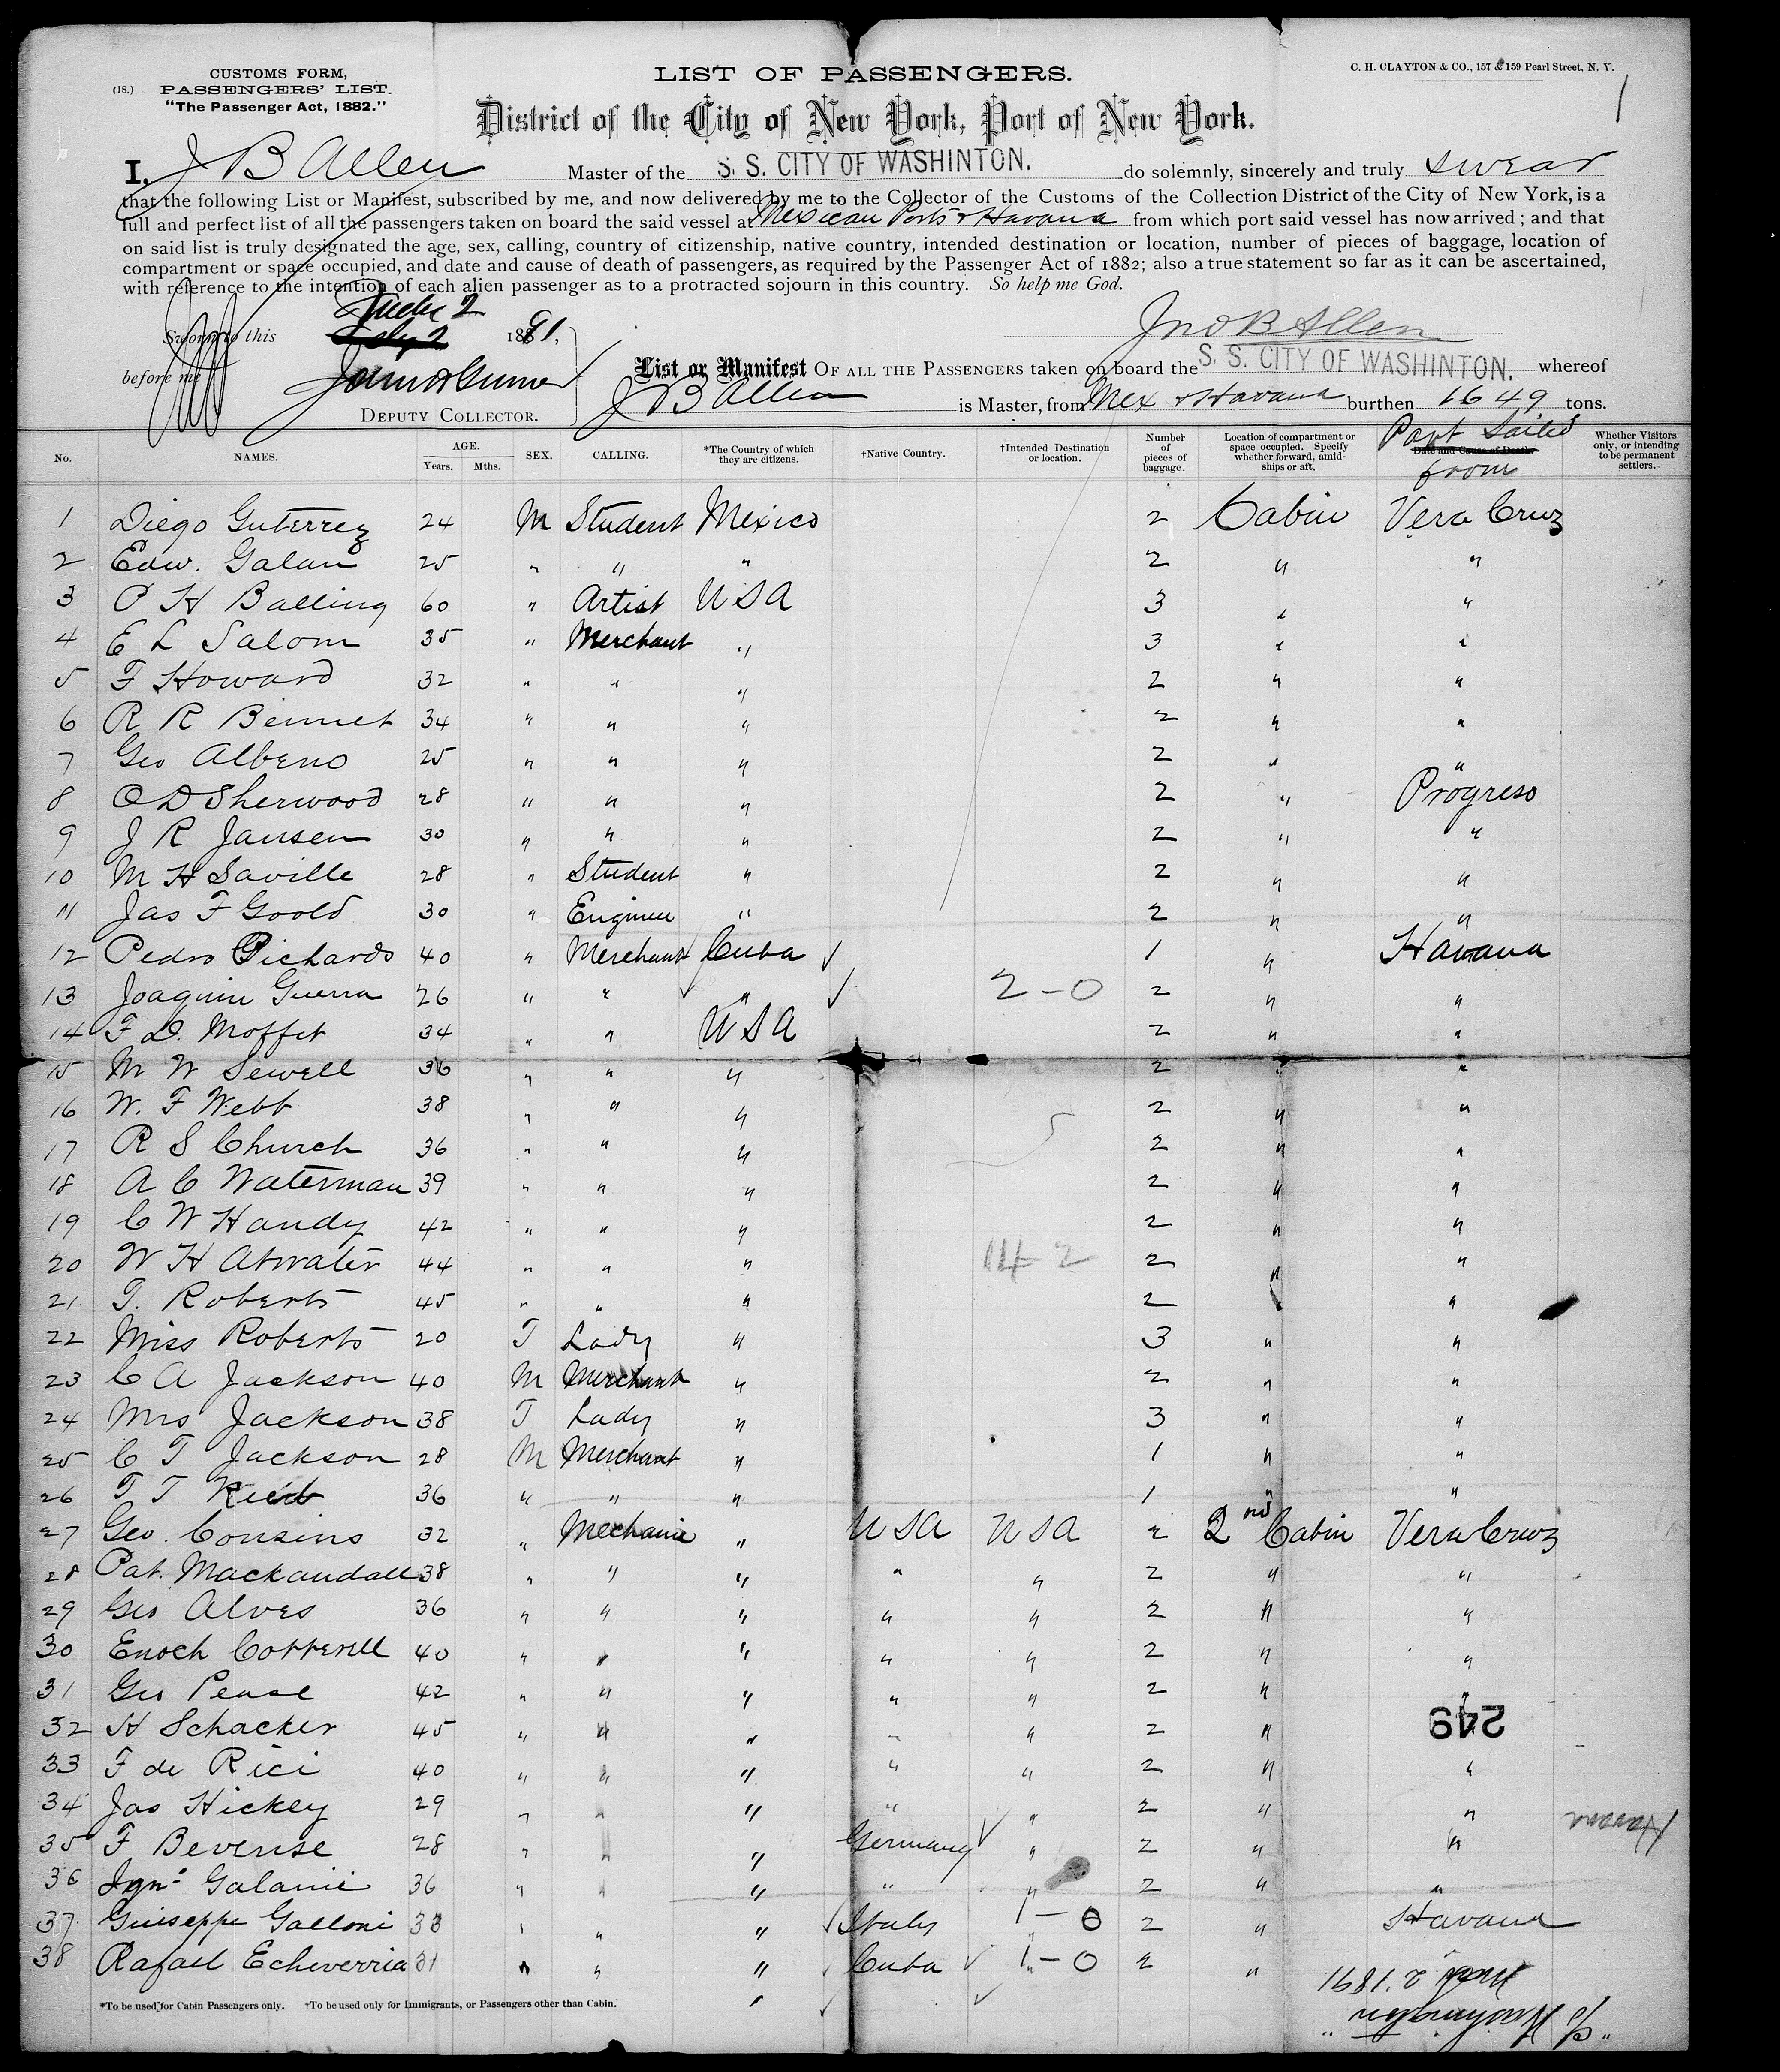 CUSTOMS FORM,
(18.) PASSENGERS' LIST.
"The Passenger Act, 1882."
LIST OF PASSENGERS.
C. H. CLAYTON & CO., 157 & 159 Pearl Street, N. Y.
1
District of the City of New York, Port of New York.
I, J B Allen Master of the S. S. CITY OF WASHINTON. do solemnly, sincerely and truly swear
that the following List or Manifest, subscribed by me, and now delivered by me to the Collector of the Customs of the Collection District of the City of New York, is a
full and perfect list of all the passengers taken on board the said vessel at Mexican Ports & Havana from which port said vessel has now arrived; and that
on said list is truly designated the age, sex, calling, country of citizenship, native country, intended destination or location, number of pieces of baggage, location of
compartment or space occupied, and date and cause of death of passengers, as required by the Passenger Act of 1882; also a true statement so far as it can be ascertained,
with reference to the intention of each alien passenger as to a protracted sojourn in this country. So help me God.
Sworn to this 2 1891,
Jno B Allen
before me
DEPUTY COLLECTOR.
List or Manifest OF ALL THE PASSENGERS taken on board the S. S. CITY OF WASHINTON. whereof
J B Allen is Master, from Mex & Havana burthen 1649 tons.
No. NAMES. AGE. Years. Mths. SEX. CALLING. *The Country of which they are citizens. †Native Country. †Intended Destination or location. Number of pieces of baggage. Location of compartment or space occupied. Specify whether forward, amidships or aft. Date and Cause of Death. Port Sailed from Whether Visitors only, or intending to be permanent settlers.
1 Diego Guterrez 24 M Student Mexico 2 Cabin Vera Cruz
2 Edw. Galan 25 " " " 2 " "
3 P H Balling 60 " Artist USA 3 " "
4 E L Salom 35 " Merchant " 3 " "
5 F Howard 32 " " " 2 " "
6 R R Bennet 34 " " " 2 " "
7 Geo Albeno 25 " " " 2 " "
8 O D Sherwood 28 " " " 2 " Progreso
9 J R Jansen 30 " " " 2 " "
10 M H Saville 28 " Student " 2 " "
11 Jas F Goold 30 " Engineer " 2 " "
12 Pedro Pichardo 40 " Merchant Cuba 1 " Havana
13 Joaquin Guerra 26 " " " 2-0 2 " "
14 F D. Moffet 34 " " USA 2 " "
15 M W Sewell 36 " " " 2 " "
16 W. F Webb 38 " " " 2 " "
17 R S Church 36 " " " 2 " "
18 A C Waterman 39 " " " 2 " "
19 C W Handy 42 " " " 2 " "
20 W H Atwater 44 " " " 14-2 2 " "
21 T. Roberts 45 " " " 2 " "
22 Miss Roberts 20 F Lady " 3 " "
23 C A Jackson 40 M Merchant " 2 " "
24 Mrs Jackson 38 F Lady " 3 " "
25 C T Jackson 28 M Merchant " 1 " "
26 T T 36 " " " 1 " "
27 Geo. Cousins 32 " Mechanic " USA USA 2 2nd Cabin Vera Cruz
28 Pat. Mackandall 38 " " " " " 2 " "
29 Geo Alves 36 " " " " " 2 " "
30 Enoch Cotterell 40 " " " " " 2 " "
31 Geo Pease 42 " " " " " 2 " "
32 H Schacker 45 " " " " " 2 " "
249
33 F de Rici 40 " " " " " 2 " "
34 Jas Hickey 29 " " " " " 2 " "
Havana
35 F Bevense 28 " " " Germany " 2 " "
36 Igno Galanie 36 " " " " " 2 " "
37 Guiseppe Galloni 38 " " " Italy 1-0 2 " Havana
38 Rafael Echeverria 31 " " " Cuba 1-0 2 "
*To be used for Cabin Passengers only. †To be used only for Immigrants, or Passengers other than Cabin.
"C/o Washington"
2 1891